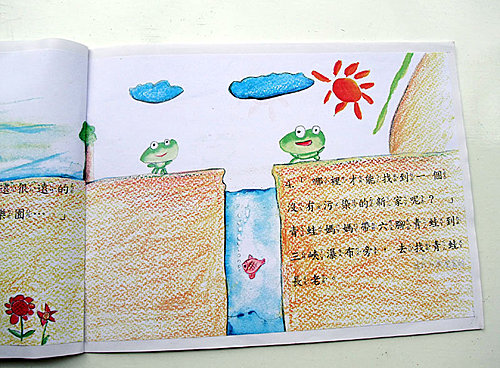 這很遠的
樂園…」
「哪裡才能找到一個
沒有污染的新家呢？」
青蛙媽媽帶六腳青蛙到
三峽瀑布旁，去找青蛙
長老。